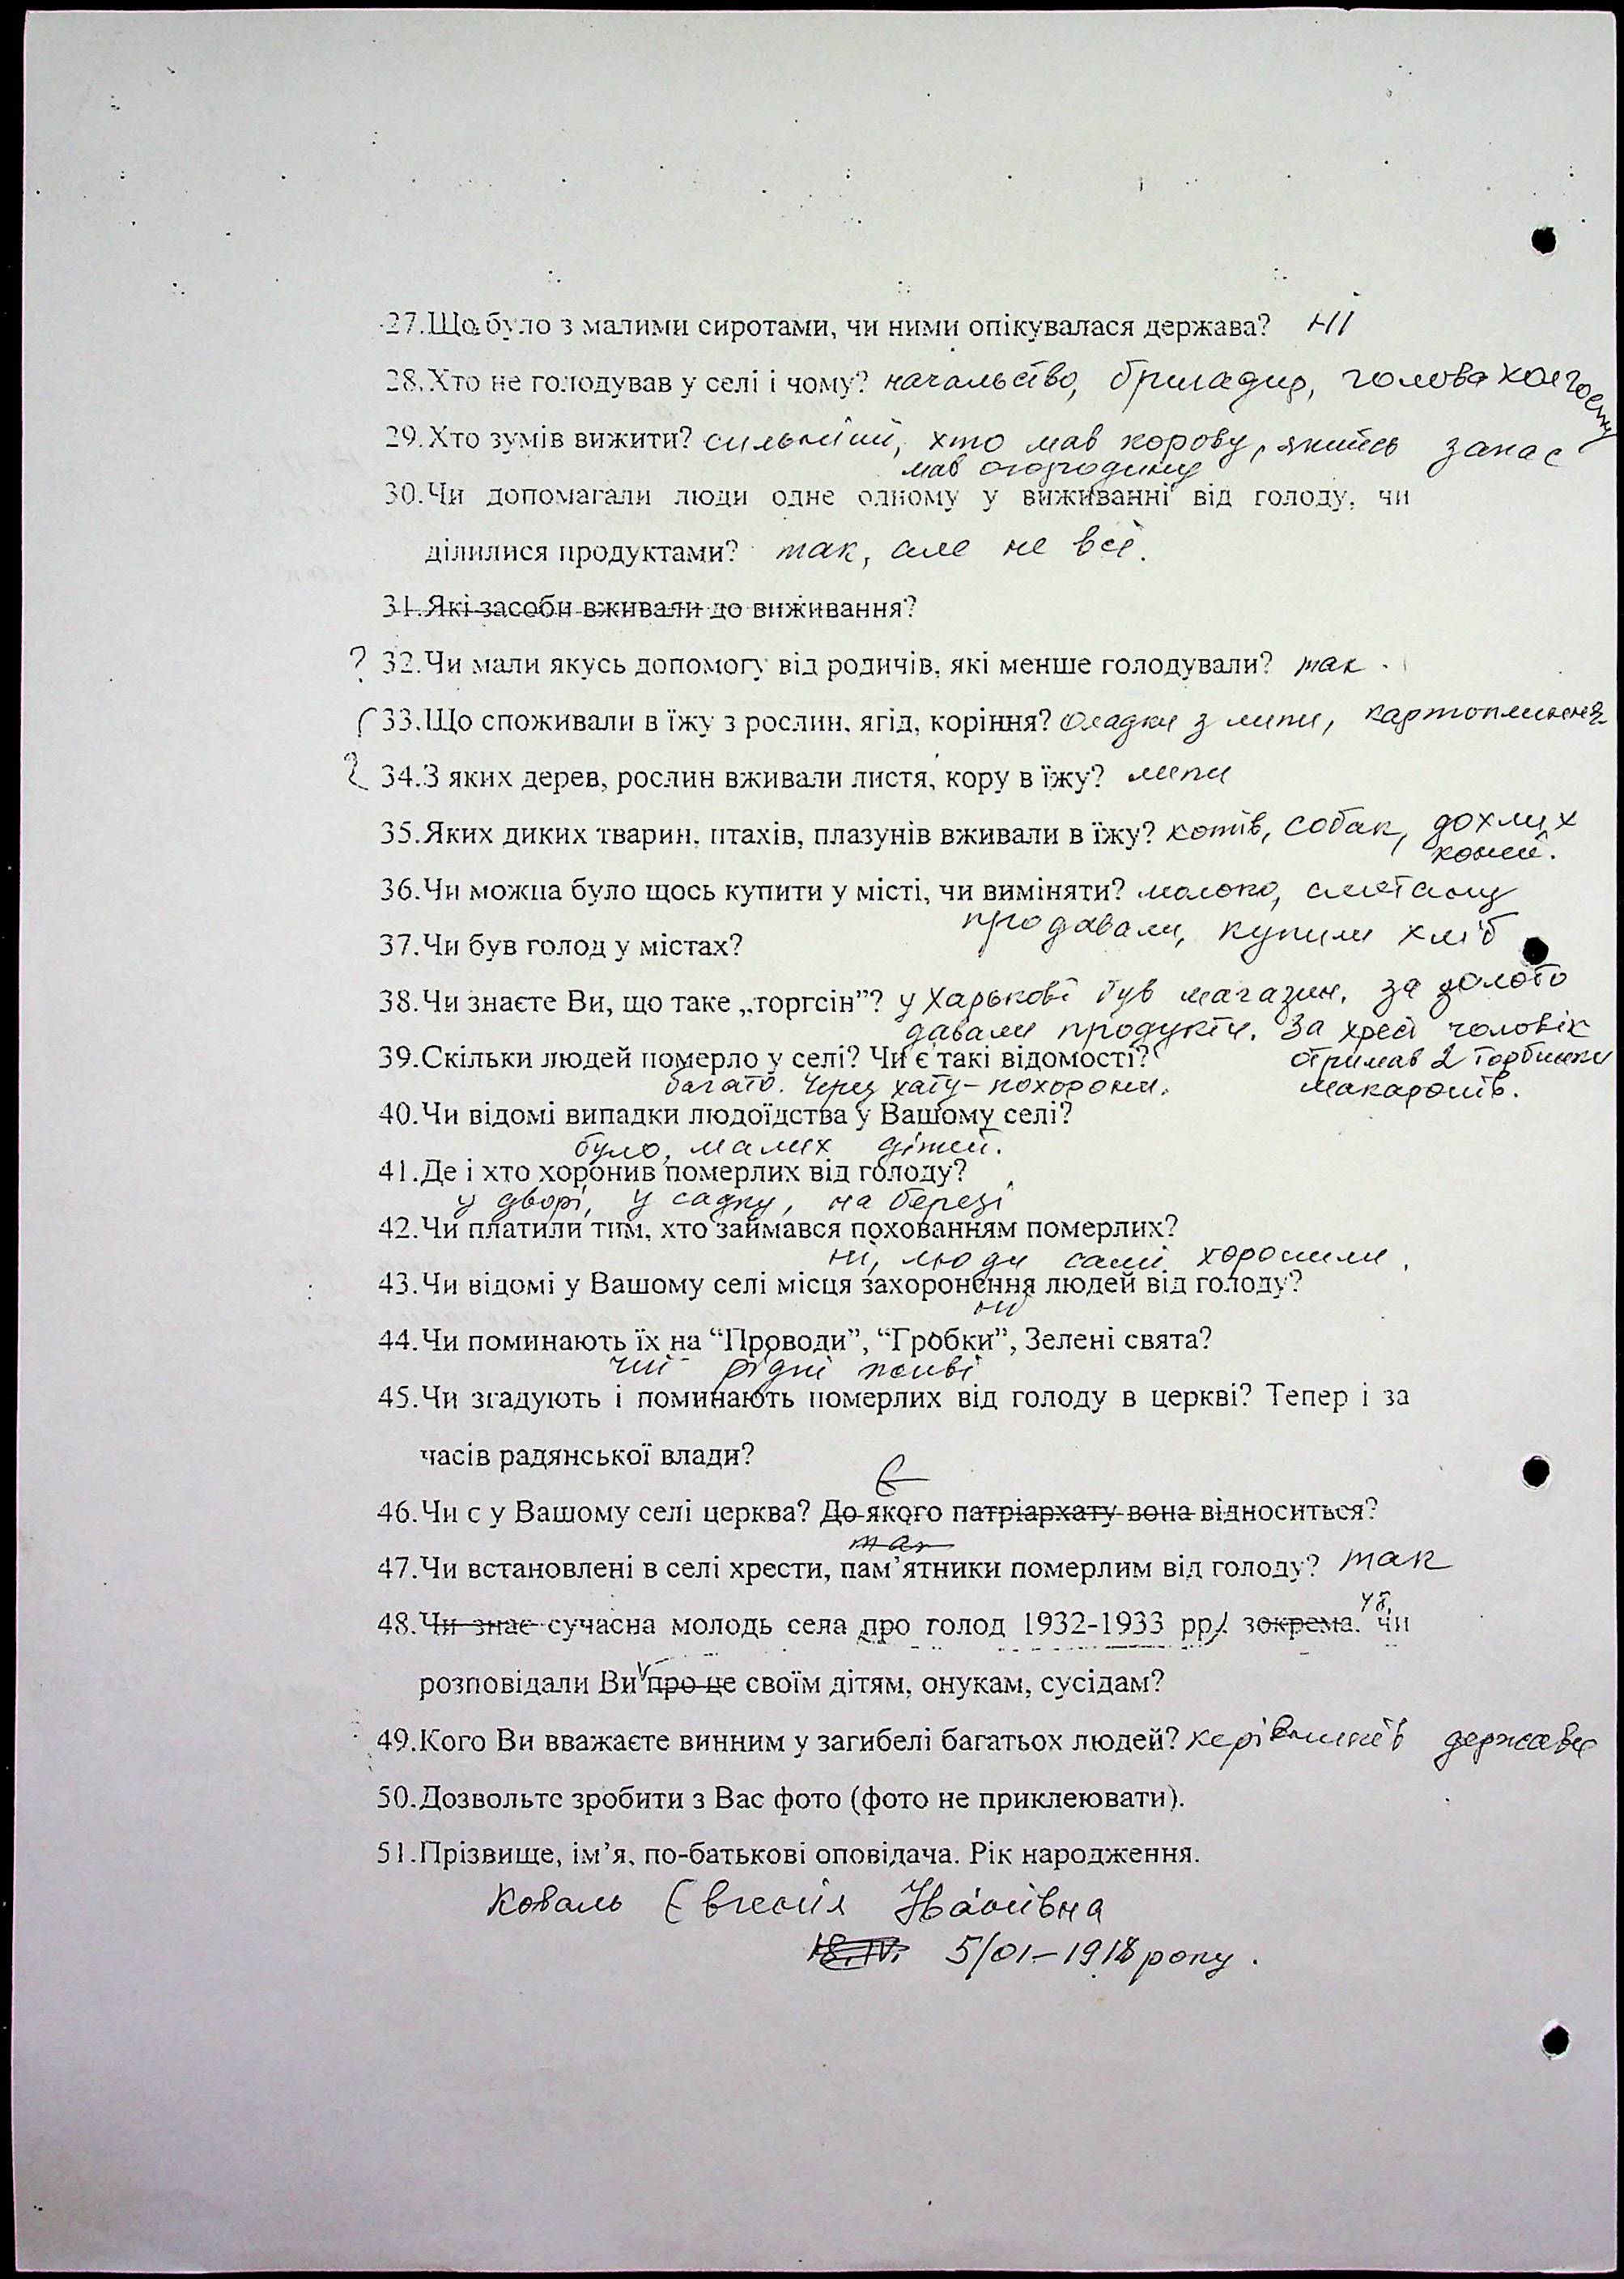 27.Що було з малими сиротами, чи ними опікувалася держава? ні
28.Хто не голодував у селі і чому? начальство, бригадир, голова колгоспу
29.Хто зумів вижити? сильніший, хто мав корову, якийсь запас
мав огородину
30.Чи допомагали люди одне одному у виживанні від голоду, чи
ділилися продуктами? так, але не всі.
31.Які засоби вживали до виживання?
? 32.Чи мали якусь допомогу від родичів, які менше голодували? так.
33.Що споживали в їжу з рослин, ягід, коріння? оладки з липи, картоплиння
34.З яких дерев, рослин вживали листя, кору в їжу? липи
35.Яких диких тварин, птахів, плазунів вживали в їжу? котів, собак, дохлих
коней.
36.Чи можна було щось купити у місті, чи виміняти? молоко, сметану
продавали, купили хліб
37.Чи був голод у містах?
38.Чи знаєте Ви, що таке „торгсін”? у Харькові був магазин, за золото
давали продукти. За хрест чоловік
отримав 2 торбинки
макаронів.
39.Скільки людей померло у селі? Чи є такі відомості?
багато. Через хату – похорони.
40.Чи відомі випадки людоїдства у Вашому селі?
було, малих дітей.
41.Де і хто хоронив померлих від голоду?
у дворі, у садку, на березі
42.Чи платили тим, хто займався похованням померлих?
ні, люди самі хоронили.
43.Чи відомі у Вашому селі місця захоронення людей від голоду?
ні
44.Чи поминають їх на “Проводи”, “Гробки”, Зелені свята?
чиї рідні живі
45.Чи згадують і поминають померлих від голоду в церкві? Тепер і за
часів радянської влади?
є
46.Чи є у Вашому селі церква? До якого патріархату вона відноситься?
так
47.Чи встановлені в селі хрести, пам’ятники померлим від голоду? так
48.Чи знає сучасна молодь села про голод 1932-1933 рр. зокрема, чи
розповідали Ви про це своїм дітям, онукам, сусідам?
49.Кого Ви вважаєте винним у загибелі багатьох людей? керівників держави
50.Дозвольте зробити з Вас фото (фото не приклеювати).
51.Прізвище, ім’я, по-батькові оповідача. Рік народження.
Коваль Євгенія Іванівна
18.IV. 5/01–1918 року.